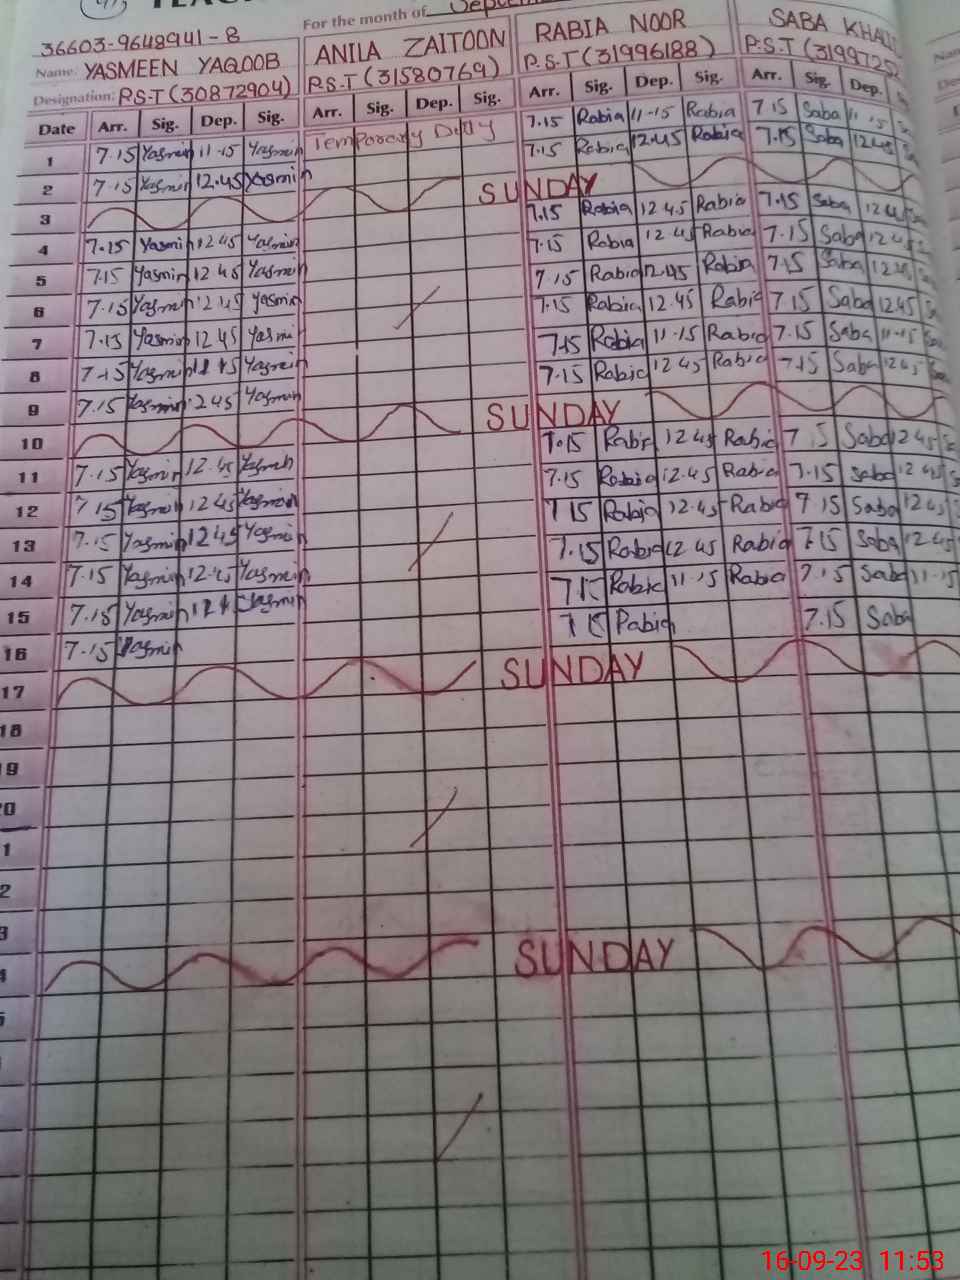 TEAC
For the month of Septem
36603-9648941-8
Name: YASMEEN YAQOOB ANILA ZAITOON RABIA NOOR SABA KHAL
Designation: P.S.T (30872904) P.S.T (31580769) P.S.T (31996188) P.S.T (3199725
Date Arr. Sig. Dep. Sig. Arr. Sig. Dep. Sig. Arr. Sig. Dep. Sig. Arr. Sig. Dep.
1 7.15 Yasmin 11-15 Yasmin Temporary Duty 7.15 Rabia 11-15 Rabia 7.15 Saba 11-15
2 7.15 Yasmin 12.45 Yasmin 7.15 Rabia 12.45 Rabia 7.15 Saba 12.45
3 SUNDAY
4 7.15 Yasmin 12 45 Yasmin 7.15 Rabia 12 45 Rabia 7.15 Saba 12 45
5 7.15 Yasmin 12 45 Yasmin 7.15 Rabia 12.45 Rabia 7.15 Saba 12 45
6 7.15 Yasmin 12 45 Yasmin 7.15 Rabia 12.45 Rabia 7.15 Saba 12.45
7 7.15 Yasmin 12 45 Yasmi 7.15 Rabia 12.45 Rabia 7.15 Saba 12.45
8 7.15 Yasmin 11 15 Yasmin 7.15 Rabia 11-15 Rabia 7.15 Saba 11-15
9 7.15 Yasmin 12 45 Yasmin 7.15 Rabia 12 45 Rabia 7.15 Saba 12 45
10 SUNDAY
11 7.15 Yasmin 12.45 Yasmin 7.15 Rabia 12 45 Rabia 7 15 Saba 12 45
12 7 15 Yasmin 12 45 Yasmin 7.15 Rabia 12.45 Rabia 7.15 Saba 12 45
13 7.15 Yasmin 12 45 Yasmin 7 15 Rabia 12.45 Rabia 7 15 Saba 12 45
14 7.15 Yasmin 12.45 Yasmin 7.15 Rabia 12 45 Rabia 7.15 Saba 12.45
15 7.15 Yasmin Yasmin 7.15 Rabia 11-15 Rabia 7.15 Saba 11-15
16 7.15 Yasmin 7 15 Rabia 7.15 Saba
17 SUNDAY
18
9
0
1
2
3
4 SUNDAY
5
16-09-23 11:53